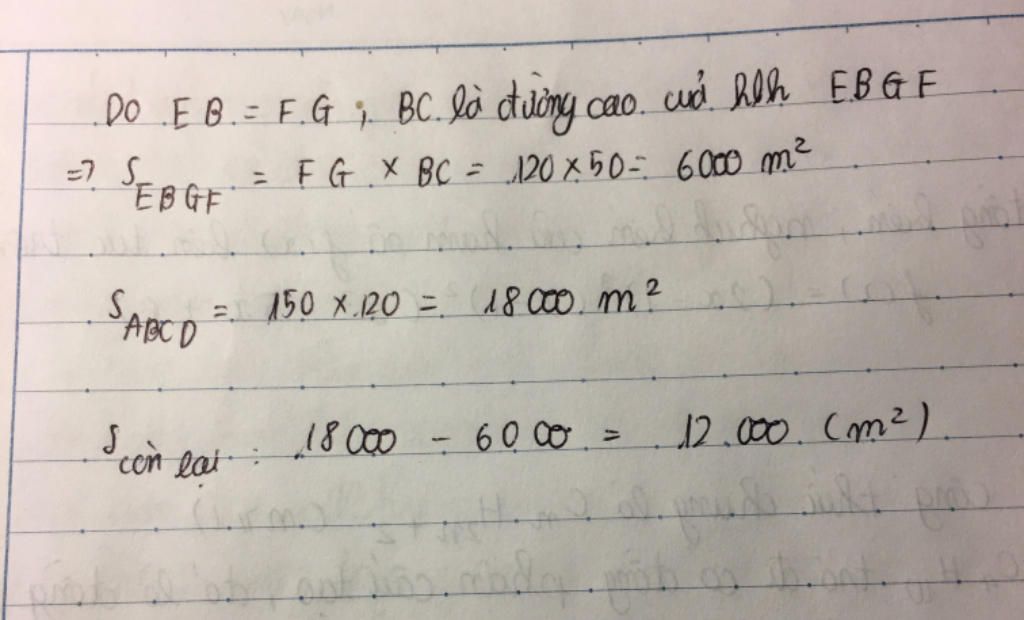 Do EB = FG ; BC là đường cao của hbh EBGF
=> S EBGF = FG × BC = 120 × 50 = 6000 m²
S ABCD = 150 × 120 = 18000 m²
S còn lại : 18000 - 6000 = 12.000 (m²)